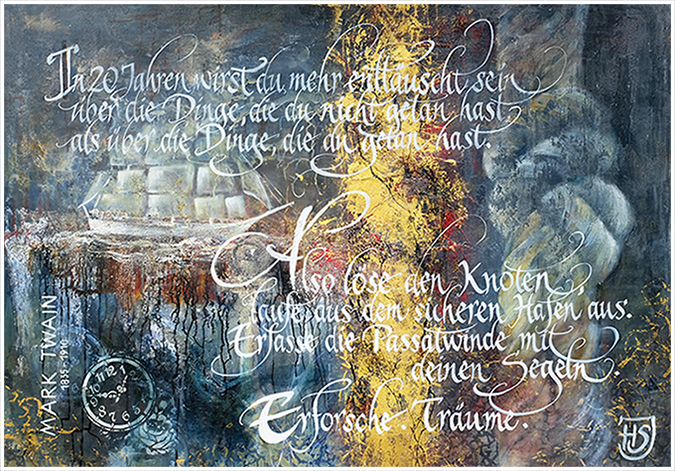 In 20 Jahren wirst du mehr enttäuscht sein
über die Dinge, die du nicht getan hast
als über die Dinge, die du getan hast.
Also löse den Knoten,
laufe aus dem sicheren Hafen aus.
Erfasse die Passatwinde mit
deinen Segeln.
Erforsche. Träume.
MARK TWAIN
1835-1910